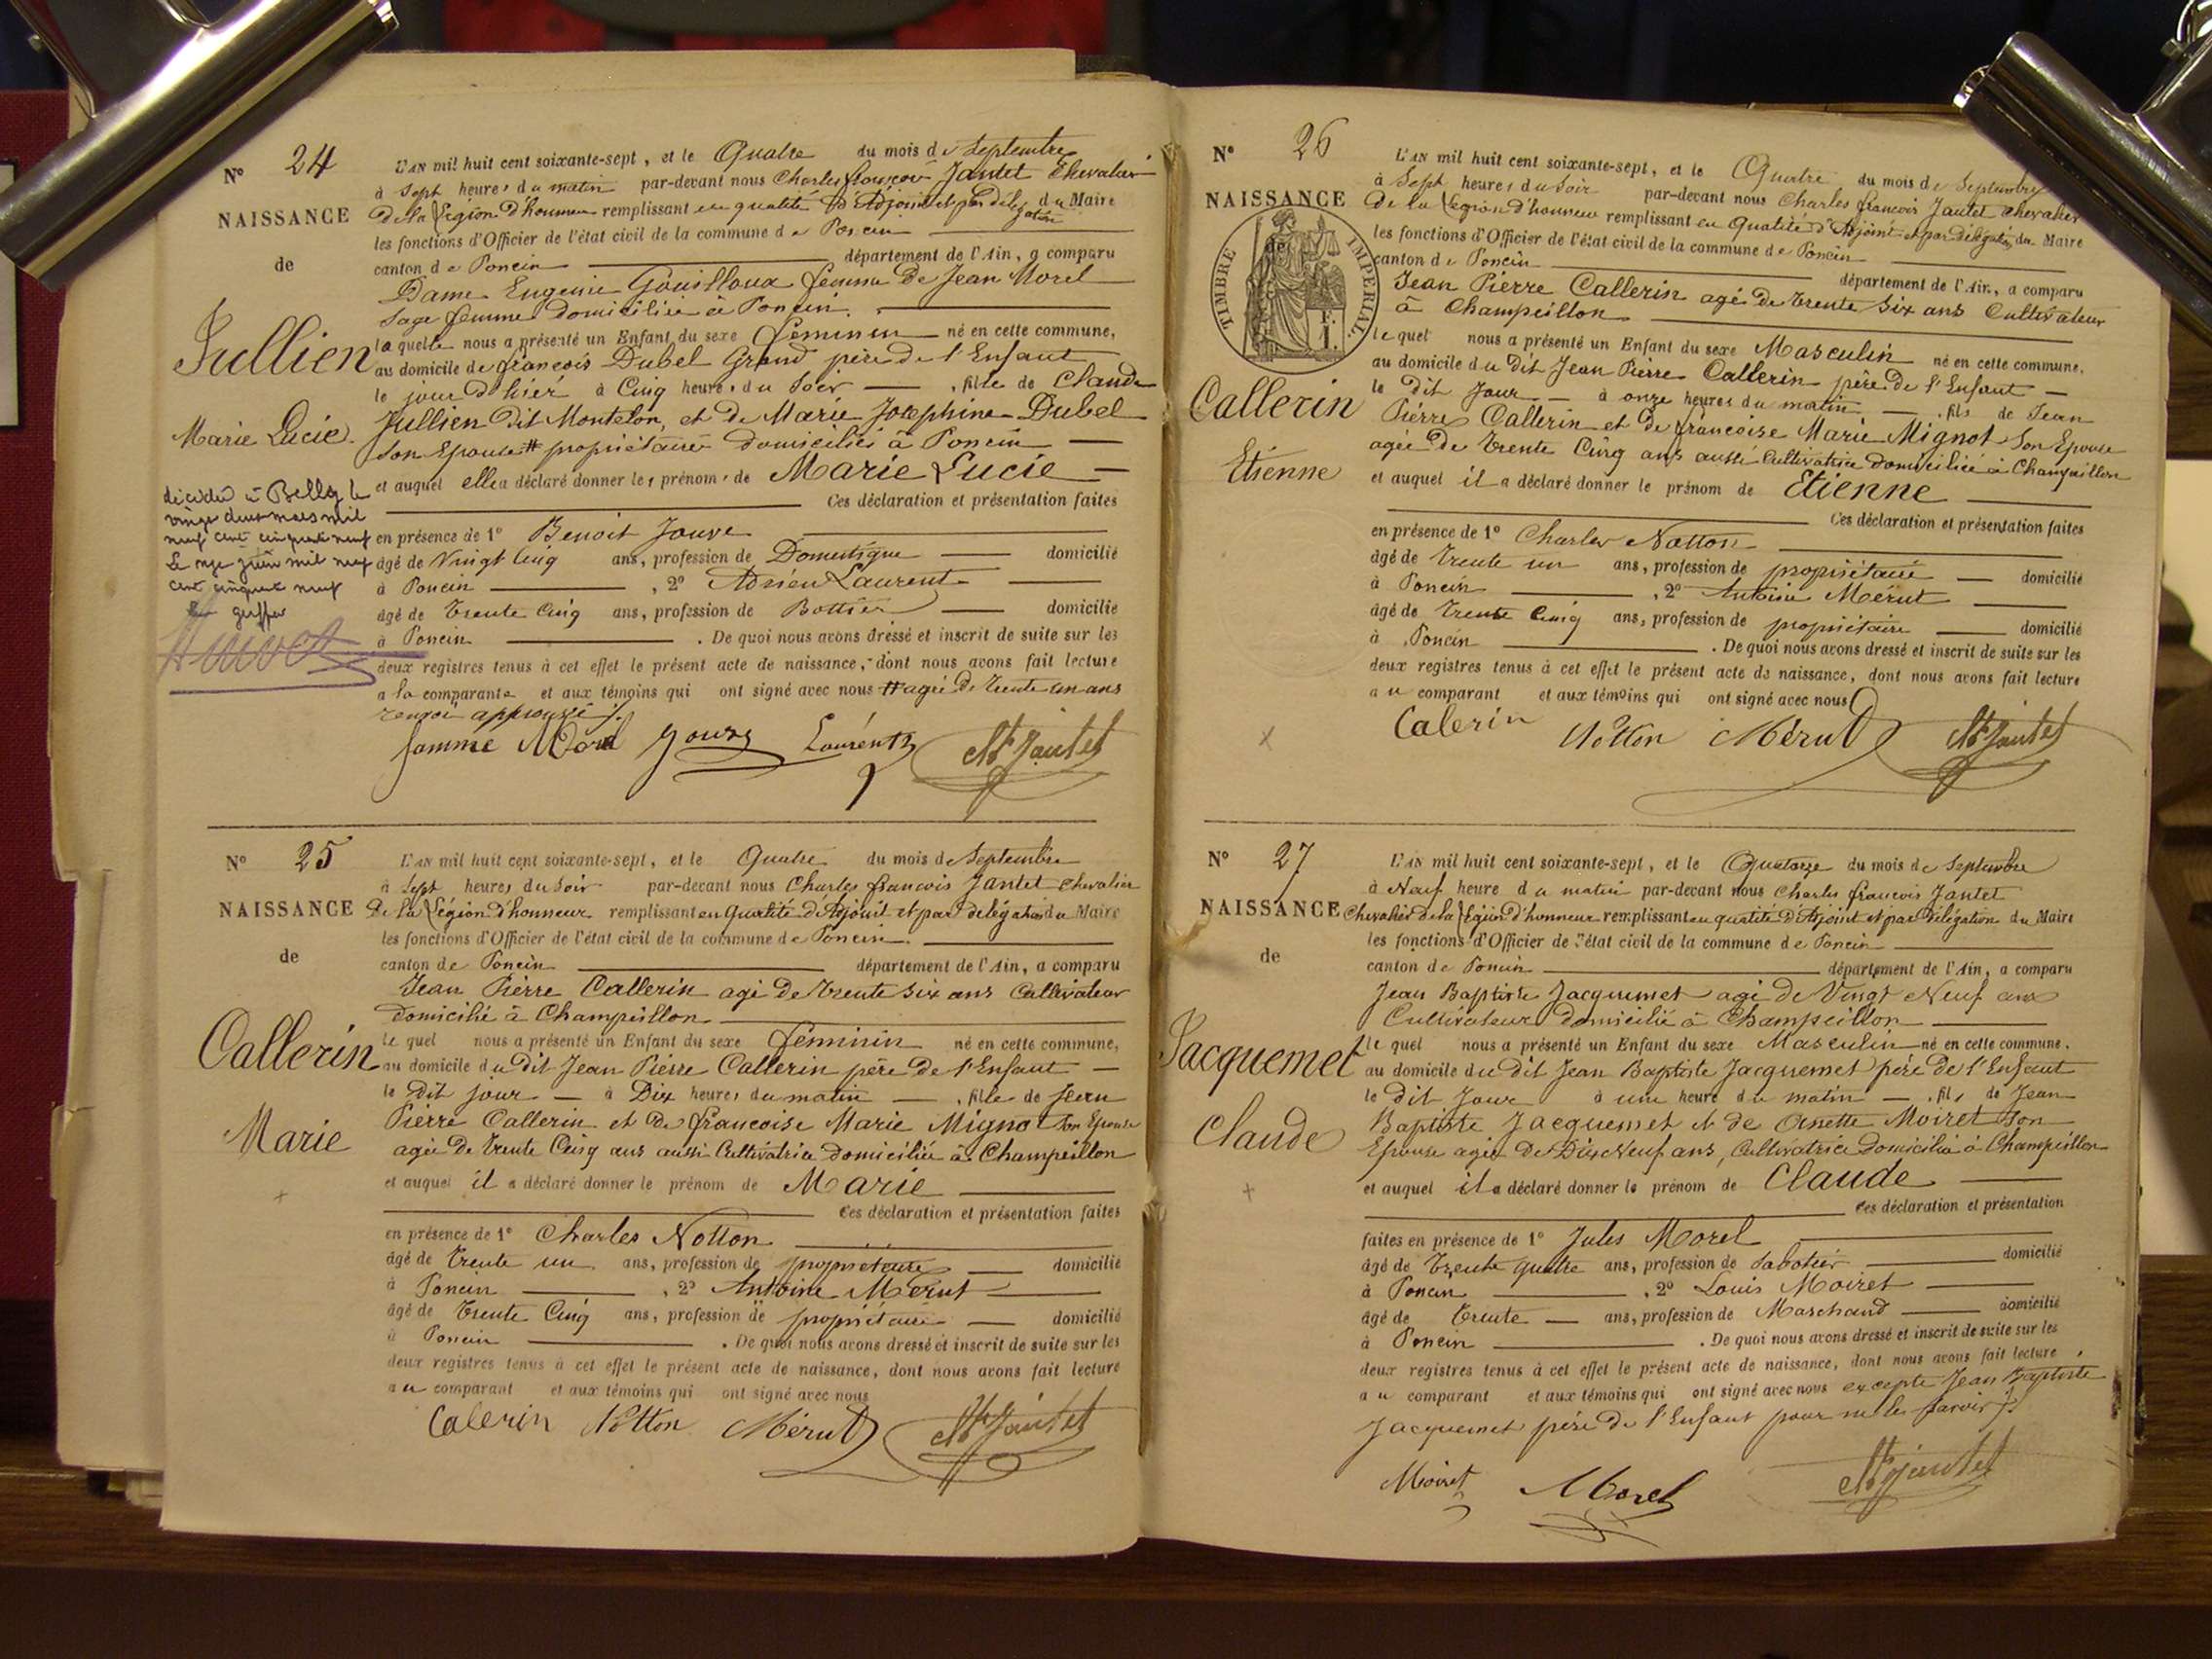 N° 24
NAISSANCE
de
Jullien
Marie Lucie.
décédée à Belley le
vingt deux mars mil
neuf cent cinquante neuf
Le onze juin mil neuf
cent cinquante neuf
L'AN mil huit cent soixante-sept, et le Quatre du mois de Septembre
à Sept heures du matin par-devant nous Charles François Jantet Chevalier
De la Légion d'honneur remplissant en qualité d'Adjoint et par délégation du Maire
les fonctions d'Officier de l'état civil de la commune de Poncin
canton de Poncin département de l'Ain, a comparu
Dame Eugenie Gouilloux femme De Jean Morel
Sage femme domiciliée à Poncin.
laquelle nous a présenté un Enfant du sexe Féminin né en cette commune,
au domicile de françois Dubel Grand père de l'Enfant
le jour d'hier à Cinq heures du Soir , fille de Claude
Jullien dit Montelon, et de Marie Josephine Dubel
son Epouse # propriétaires domiciliés à Poncin
et auquel elle a déclaré donner les prénoms de Marie Lucie
Ces déclaration et présentation faites
en présence de 1° Benoit Jouve
âgé de Vingt Cinq ans, profession de Domestique domicilié
à Poncin , 2° Adrien Laurent
âgé de Trente Cinq ans, profession de Bottier domicilié
à Poncin . De quoi nous avons dressé et inscrit de suite sur les
deux registres tenus à cet effet le présent acte de naissance, dont nous avons fait lecture
a la comparante et aux témoins qui ont signé avec nous # agée de trente un ans
renvoi approuvé
famme Morel Jouve Laurent Jantet
N° 25
NAISSANCE
de
Callerin
Marie
L'AN mil huit cent soixante-sept, et le Quatre du mois de Septembre
à Sept heures du Soir par-devant nous Charles françois Jantet Chevalier
De la Légion d'honneur remplissant en Qualité d'Adjoint et par délégation du Maire
les fonctions d'Officier de l'état civil de la commune de Poncin
canton de Poncin département de l'Ain, a comparu
Jean Pierre Callerin agé De Trente Six ans Cultivateur
domicilié à Champeillon
le quel nous a présenté un Enfant du sexe féminin né en cette commune,
au domicile du Dit Jean Pierre Callerin père de l'Enfant
le Dit jour à Dix heures du matin , fille de Jean
Pierre Callerin et De francoise Marie Mignot son Epouse
agée De Trente Cinq ans aussi Cultivatrice domiciliée à Champeillon
et auquel il a déclaré donner le prénom de Marie
Ces déclaration et présentation faites
en présence de 1° Charles Notton
âgé de Trente un ans, profession de propriétaire domicilié
à Poncin , 2° Antoine Mérut
âgé de Trente Cinq ans, profession de propriétaire domicilié
à Poncin . De quoi nous avons dressé et inscrit de suite sur les
deux registres tenus à cet effet le présent acte de naissance, dont nous avons fait lecture
au comparant et aux témoins qui ont signé avec nous
Calerin Notton Mérut Jantet
N° 26
NAISSANCE
de
TIMBRE IMPERIAL.
F.
1.
Callerin
Etienne
L'AN mil huit cent soixante-sept, et le Quatre du mois de Septembre
à Sept heures du Soir par-devant nous Charles francois Jantet Chevalier
De la Légion d'honneur remplissant en Qualité d'Adjoint et par délégation du Maire
les fonctions d'Officier de l'état civil de la commune de Poncin
canton de Poncin département de l'Ain, a comparu
Jean Pierre Callerin agé de Trente Six ans Cultivateur
à Champeillon
le quel nous a présenté un Enfant du sexe Masculin né en cette commune,
au domicile du dit Jean Pierre Callerin père De l'Enfant
le dit Jour à onze heures du matin , fils de Jean
Pierre Callerin et de françoise Marie Mignot Son Epouse
agée De Trente Cinq ans aussi Cultivatrice domiciliée à Champeillon
et auquel il a déclaré donner le prénom de Etienne
Ces déclaration et présentation faites
en présence de 1° Charles Notton
âgé de Trente un ans, profession de propriétaire domicilié
à Poncin , 2° Antoine Mérut
âgé de Trente Cinq ans, profession de propriétaire domicilié
à Poncin . De quoi nous avons dressé et inscrit de suite sur les
deux registres tenus à cet effet le présent acte de naissance, dont nous avons fait lecture
au comparant et aux témoins qui ont signé avec nous
Calerin Notton Mérut Jantet
N° 27
NAISSANCE
de
Jacquemet
Claude
L'AN mil huit cent soixante-sept, et le Quatorze du mois de Septembre
à Neuf heure du matin par-devant nous Charles françois Jantet
Chevalier de la Légion d'honneur remplissant en qualité D'Adjoint et par Délégation du Maire
les fonctions d'Officier de l'état civil de la commune de Poncin
canton de Poncin département de l'Ain, a comparu
Jean Baptiste Jacquemet agé de Vingt Neuf ans
Cultivateur domicilié à Champeillon
le quel nous a présenté un Enfant du sexe Masculin né en cette commune,
au domicile du dit Jean Baptiste Jacquemet père de l'Enfant
le dit Jour à une heure du matin , fils de Jean
Baptiste Jacquemet et de Annette Moiret son
Epouse agée de Dix Neuf ans, Cultivatrice domicilié à Champeillon
et auquel il a déclaré donner le prénom de Claude
Ces déclaration et présentation
faites en présence de 1° Jules Morel
âgé de Trente quatre ans, profession de Sabotier domicilié
à Poncin , 2° Louis Moiret
âgé de Trente ans, profession de Marchand domicilié
à Poncin . De quoi nous avons dressé et inscrit de suite sur les
deux registres tenus à cet effet le présent acte de naissance, dont nous avons fait lecture
au comparant et aux témoins qui ont signé avec nous excepté Jean Baptiste
Jacquemet père de l'Enfant pour ne le savoir
Moiret Morel Jantet